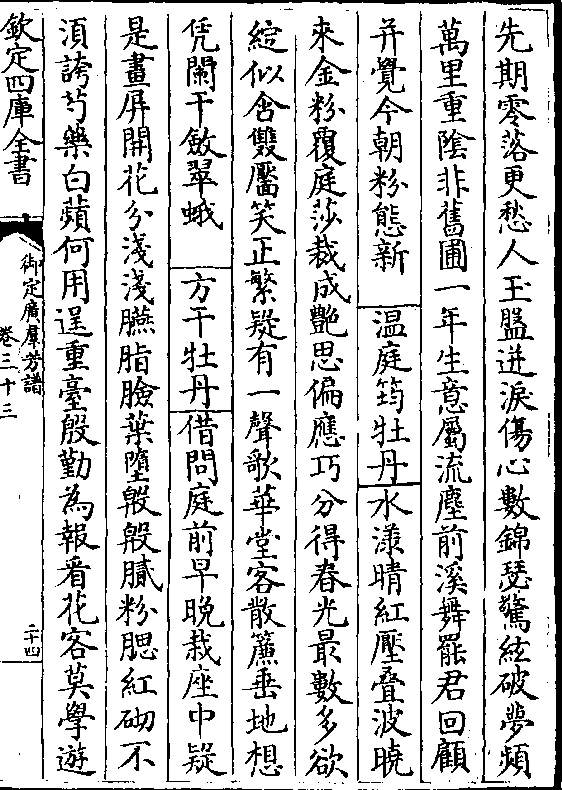 先期零落更愁人玉盤迸淚傷心數錦瑟驚絃破夢頻
萬里重陰非舊圃一年生意屬流塵前溪舞罷君回顧
并覺今朝粉態新 温庭筠牡丹水漾晴紅壓叠波曉
來金粉覆庭莎裁成艷思偏應巧分得春光最數多欲
綻似含雙靨笑正繁疑有一聲歌華堂客散簾垂地想
凭闌干斂翠蛾 方干牡丹借問庭前早晚栽座中疑
是畫屏開花分淺淺臙脂臉葉墮殷殷膩粉腮紅砌不
湏誇芍藥白蘋何用逞重臺殷勤為報看花客莫學遊
欽定四庫全書
御定廣羣芳譜
卷三十三
二十四